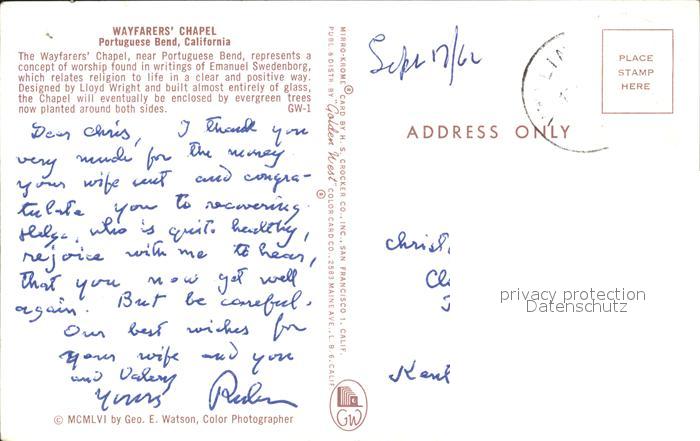 WAYFARERS' CHAPEL
Portuguese Bend, California
The Wayfarers' Chapel, near Portuguese Bend, represents a
concept of worship found in writings of Emanuel Swedenborg,
which relates religion to life in a clear and positive way.
Designed by Lloyd Wright and built almost entirely of glass,
the Chapel will eventually be enclosed by evergreen trees
now planted around both sides. GW-1
Dear Chris, I thank you
very much for the money
your wife sent and congra-
tulate you to recovering.
Helga, who is quite healthy,
rejoice with me to hear,
that you now get well
again. But be careful.
Our best wishes for
your wife and you
and Valery
Yours
© MCMLVI by Geo. E. Watson, Color Photographer
MIRRO-KROME® CARD BY H. S. CROCKER CO., INC., SAN FRANCISCO 1, CALIF.
PUBL. & DISTR. BY "Golden West"® COLOR CARD CO., 2583 MAINE AVE., L. B. 6, CALIF.
GW
Sept 17/62
PLACE
STAMP
HERE
ADDRESS ONLY
Christ
Cl
privacy protection
Datenschutz